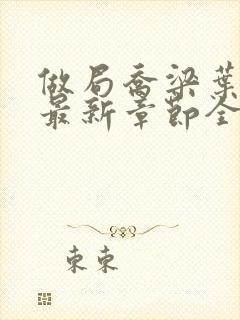 做局乔梁葉
最新章節全
東東